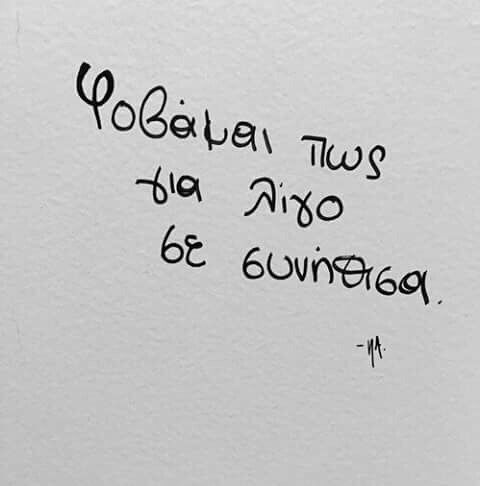 Φοβάμαι πως
για λίγο
σε συνήθισα.
-ΗΑ.